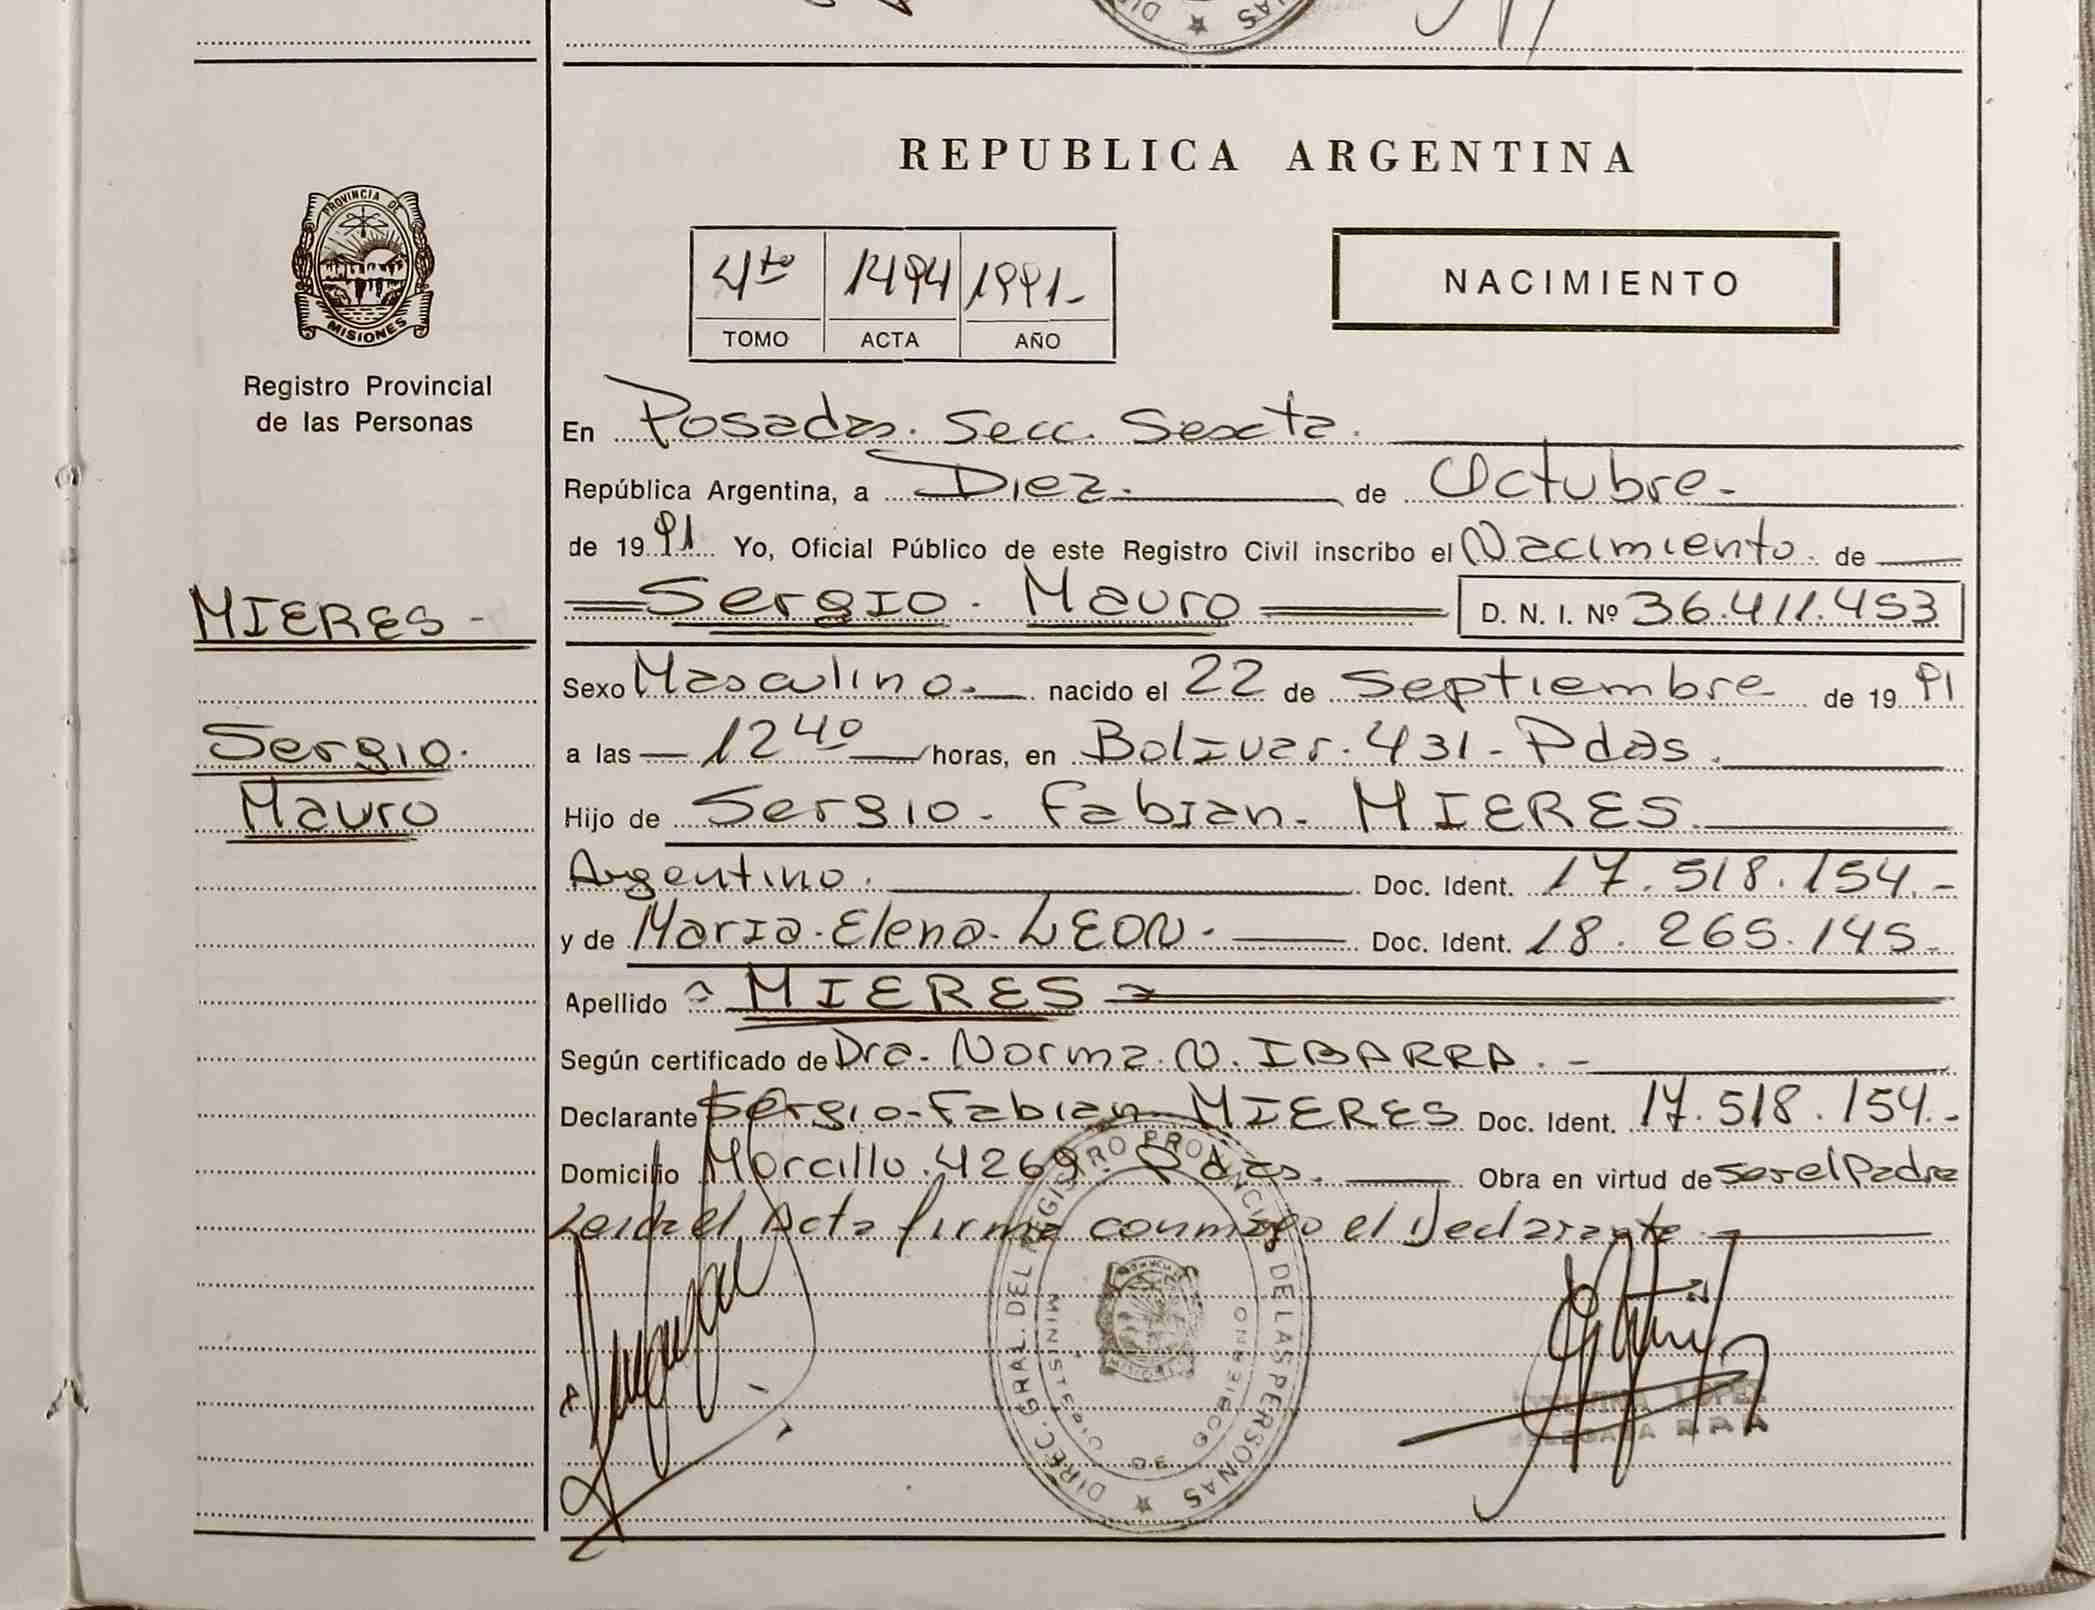 PROVINCIA DE
MISIONES
Registro Provincial
de las Personas
MIERES -
Sergio.
Mauro
REPUBLICA ARGENTINA
4to 1494 1991-
TOMO ACTA AÑO
NACIMIENTO
En Posadas. Secc. Sexta.
República Argentina, a Diez. de Octubre.-
de 1991 Yo, Oficial Público de este Registro Civil inscribo el Nacimiento. de
Sergio. Mauro D. N. I. Nº 36.411.453
Sexo Masculino. nacido el 22 de Septiembre de 1991
a las 12 40 horas, en Bolivar. 431 - Pdas.
Hijo de Sergio. Fabian. MIERES.
Argentino. Doc. Ident. 17.518.154.-
y de Maria. Elena. LEON. Doc. Ident. 18.265.145.-
Apellido MIERES
Según certificado de Dra. Norma. N. IBARRA. -
Declarante Sergio-Fabian MIERES Doc. Ident. 17.518.154.-
Domicilio Morcillo. 4269. Pdas. Obra en virtud de ser el Padre
Leida el Acta firma conmigo el Declarante
DIREC. GRAL. DEL REGISTRO PROVINCIAL DE LAS PERSONAS
MINISTERIO DE GOBIERNO